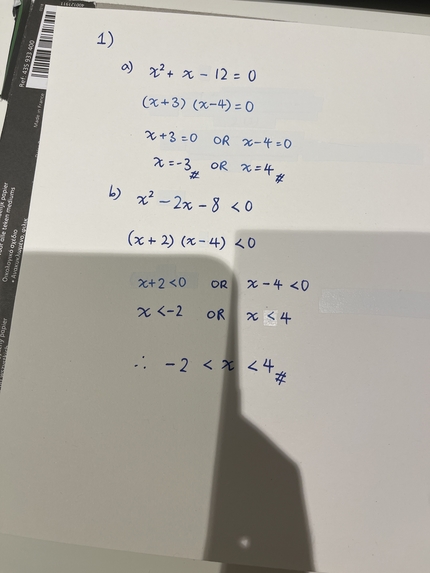 1)
a) x² + x - 12 = 0
(x+3) (x-4) = 0
x+3 = 0 OR x-4 = 0
x = -3 # OR x = 4 #
b) x² - 2x - 8 < 0
(x+2) (x-4) < 0
x+2 < 0 OR x-4 < 0
x < -2 OR x < 4
∴ -2 < x < 4 #
Ref: 435 933 400
Made in France